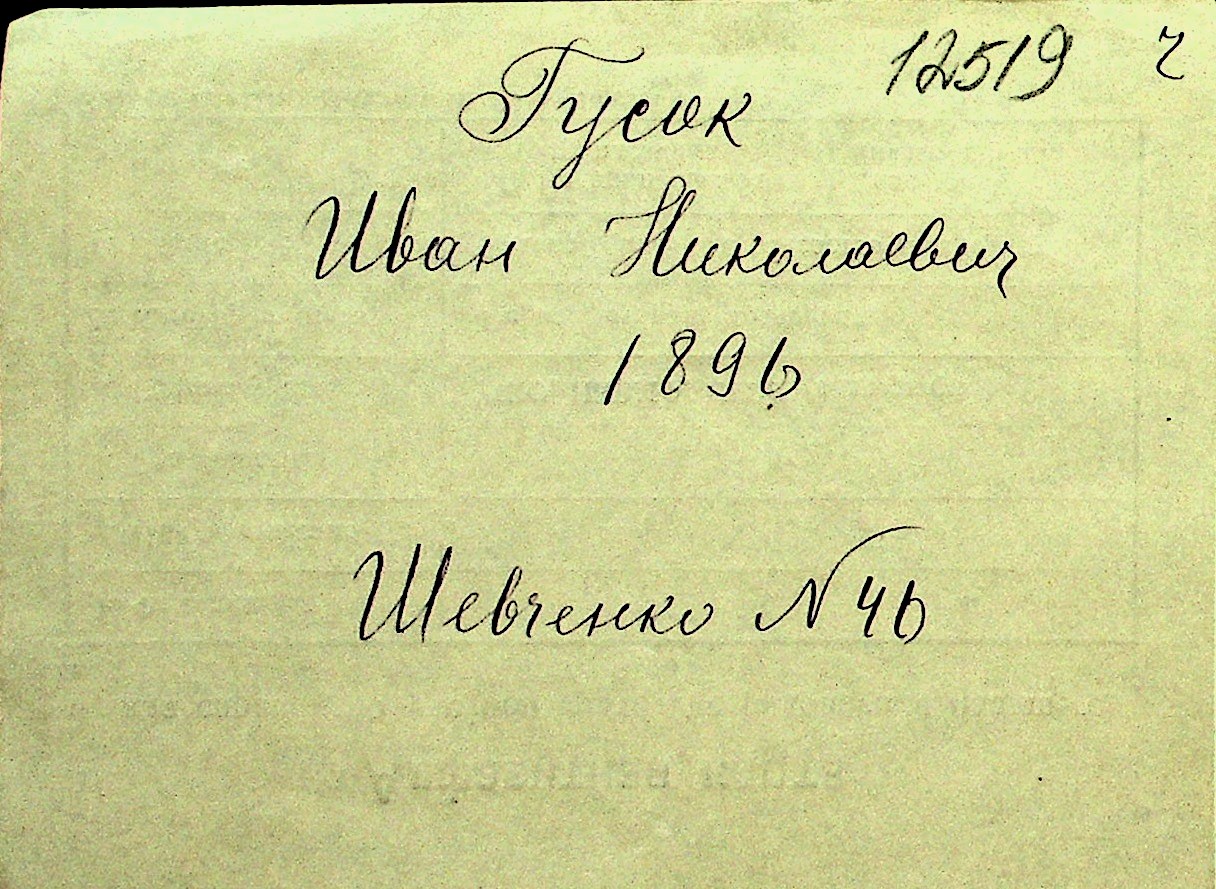 12519 ч
Гусок
Иван Николаевич
1896
Шевченко N 46